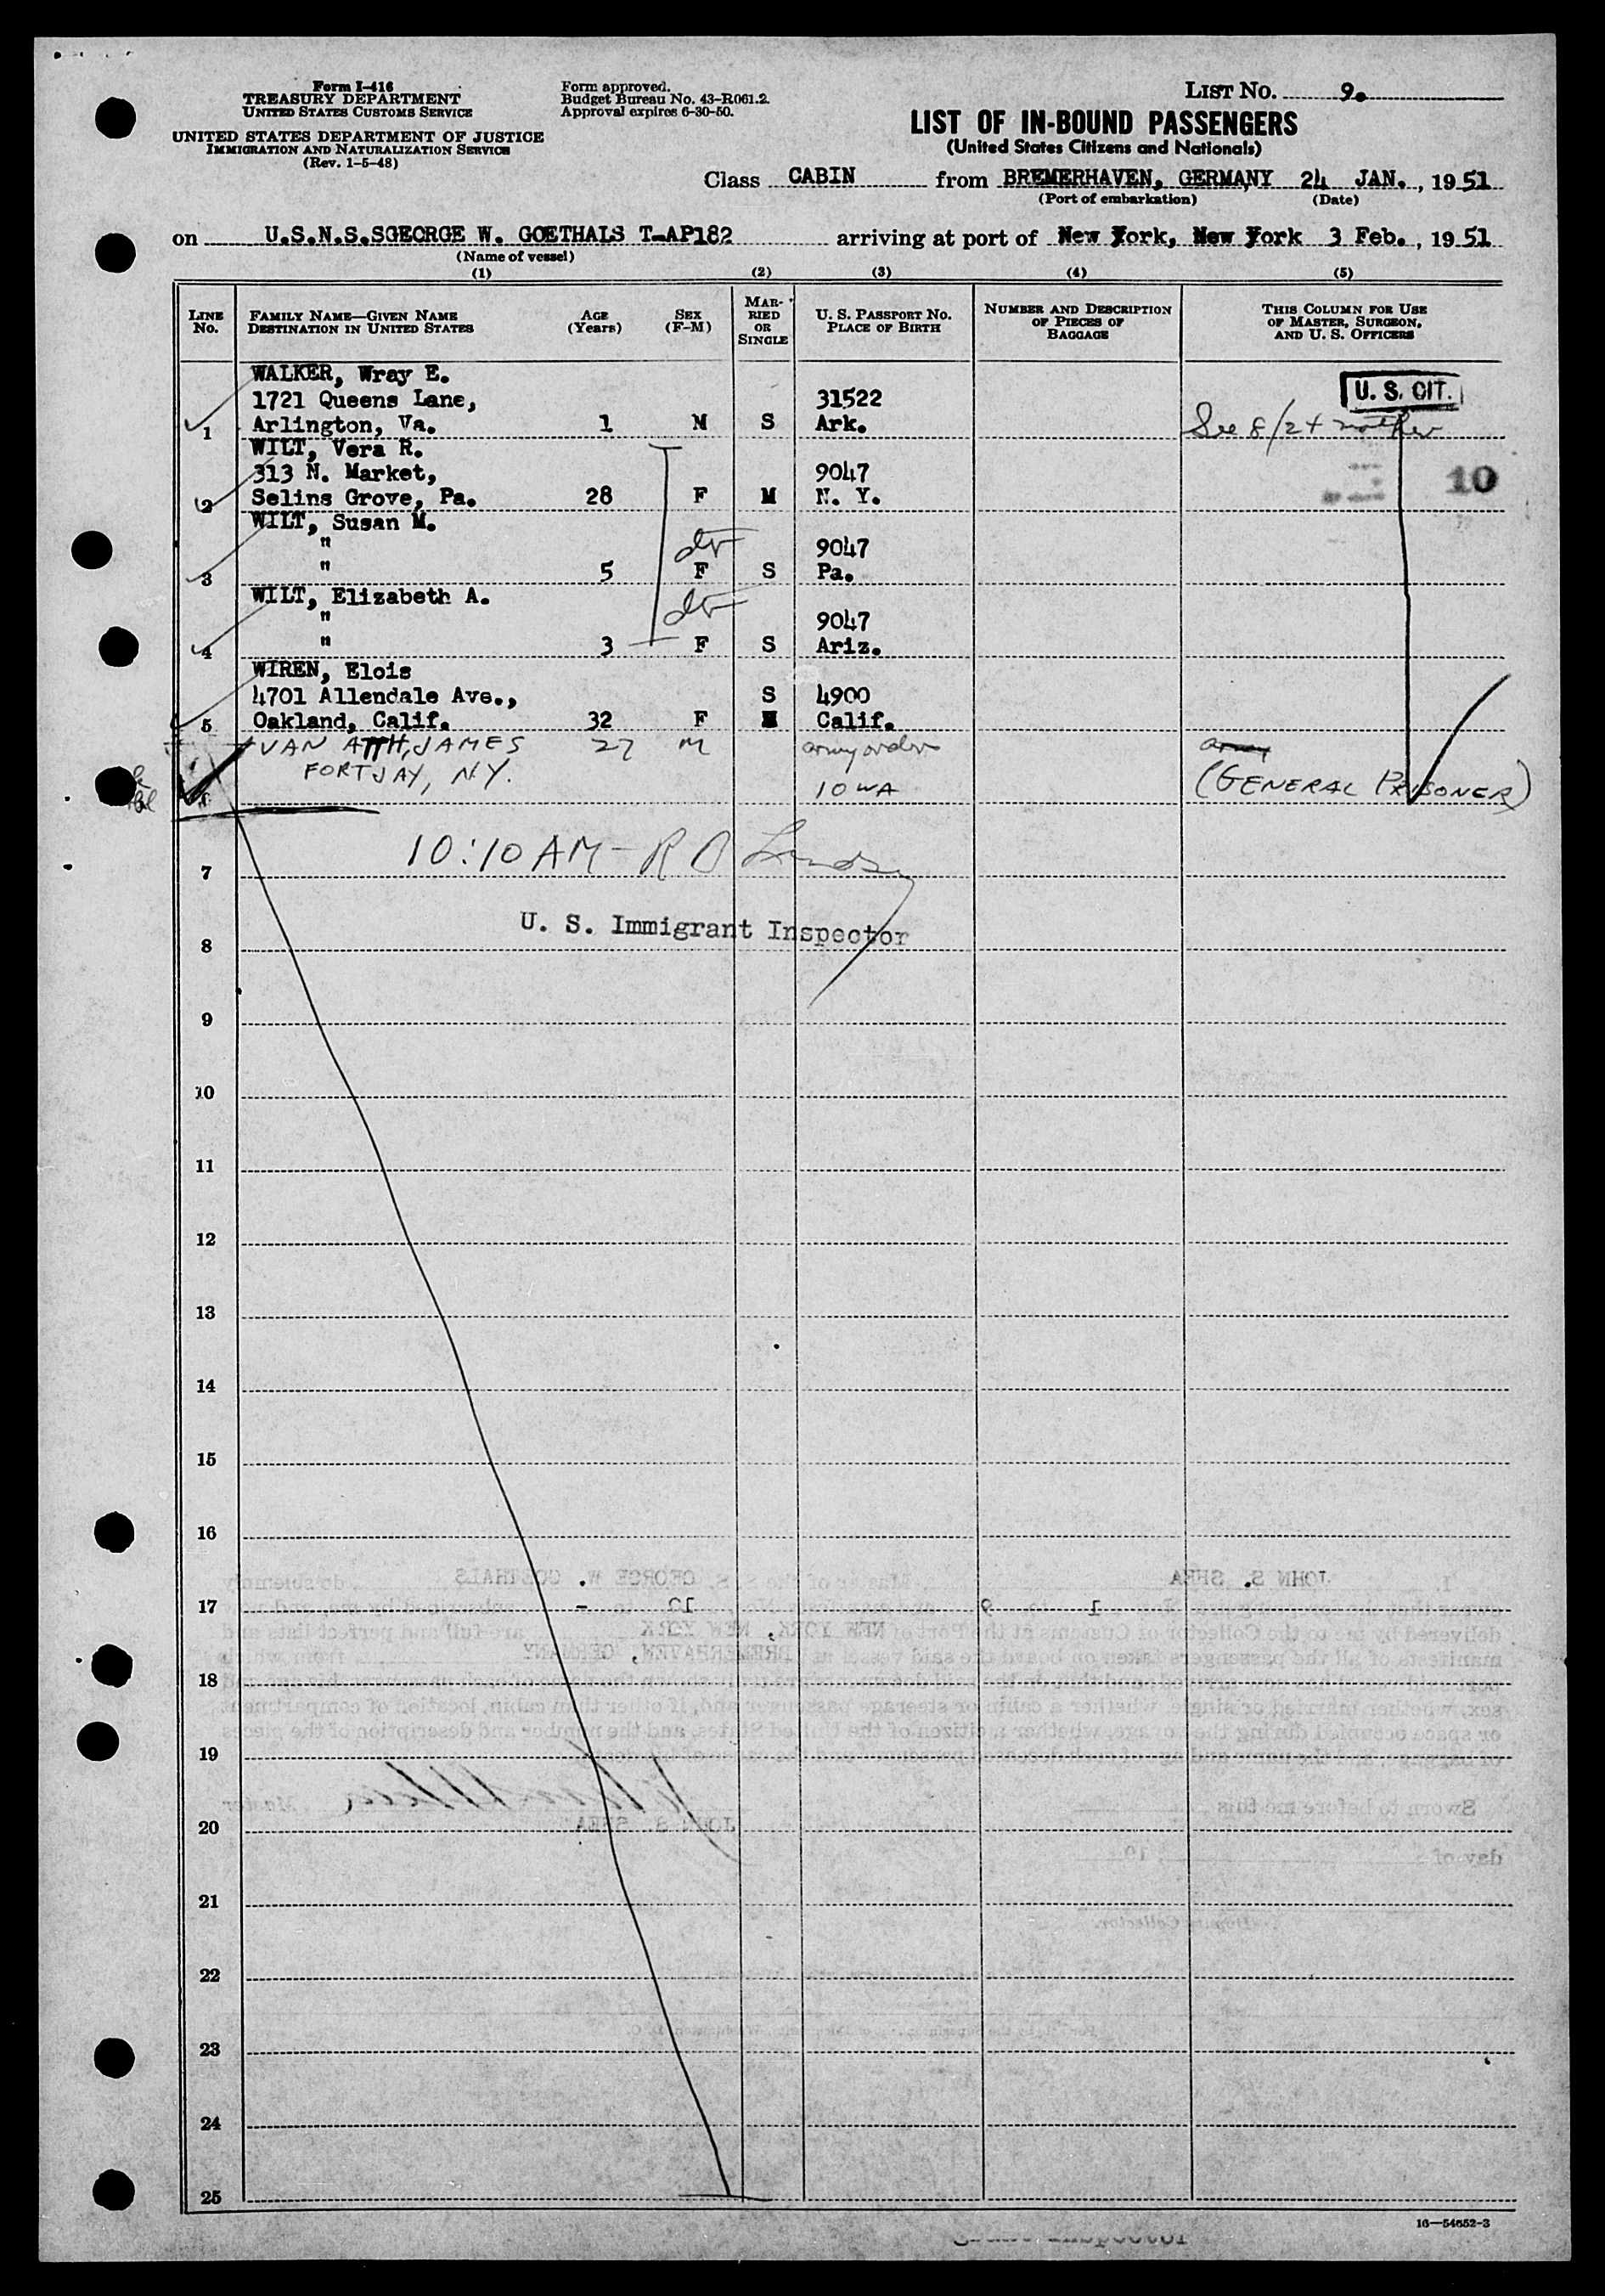 Form I-416
TREASURY DEPARTMENT
UNITED STATES CUSTOMS SERVICE
UNITED STATES DEPARTMENT OF JUSTICE
IMMIGRATION AND NATURALIZATION SERVICE
(Rev. 1-5-48)
Form approved.
Budget Bureau No. 43-R061.2.
Approval expires 6-30-50.
LIST NO. 9.
LIST OF IN-BOUND PASSENGERS
(United States Citizens and Nationals)
Class CABIN from BREMERHAVEN, GERMANY 24 JAN., 1951
(Port of embarkation) (Date)
on U.S.N.S.SGEORGE W. GOETHALS T-AP182 arriving at port of New York, New York 3 Feb., 1951
(Name of vessel)
(1) (2) (3) (4) (5)
LINE No. FAMILY NAME—GIVEN NAME DESTINATION IN UNITED STATES AGE (Years) SEX (F-M) MARRIED OR SINGLE U. S. PASSPORT NO. PLACE OF BIRTH NUMBER AND DESCRIPTION OF PIECES OF BAGGAGE THIS COLUMN FOR USE OF MASTER, SURGEON, AND U. S. OFFICERS
WALKER, Wray E.
1721 Queens Lane, 31522 U. S. CIT.
1 Arlington, Va. 1 M S Ark. See 8/24 mother
WILT, Vera R.
313 N. Market, 9047 10
2 Selins Grove, Pa. 28 F M N. Y.
WILT, Susan M.
" 9047
3 " 5 F S Pa.
WILT, Elizabeth A.
" 9047
4 " 3 F S Ariz.
WIREN, Elois
4701 Allendale Ave., S 4900
5 Oakland, Calif. 32 F Calif.
VAN ATTH, JAMES 27 M army orders army
FORT JAY, N.Y. IOWA (GENERAL PRISONER)
10:10 AM - R O
7
U. S. Immigrant Inspector
8
9
10
11
12
13
14
15
16
JOHN S. SHEA Master of the S. S. GEORGE W. GOETHALS do solemnly
17
NEW YORK, NEW YORK
BREMERHAVEN, GERMANY
18
19
Sworn to before me this
JOHN S. SHEA
20
day of 19
21
22
23
24
25
16—54652-3